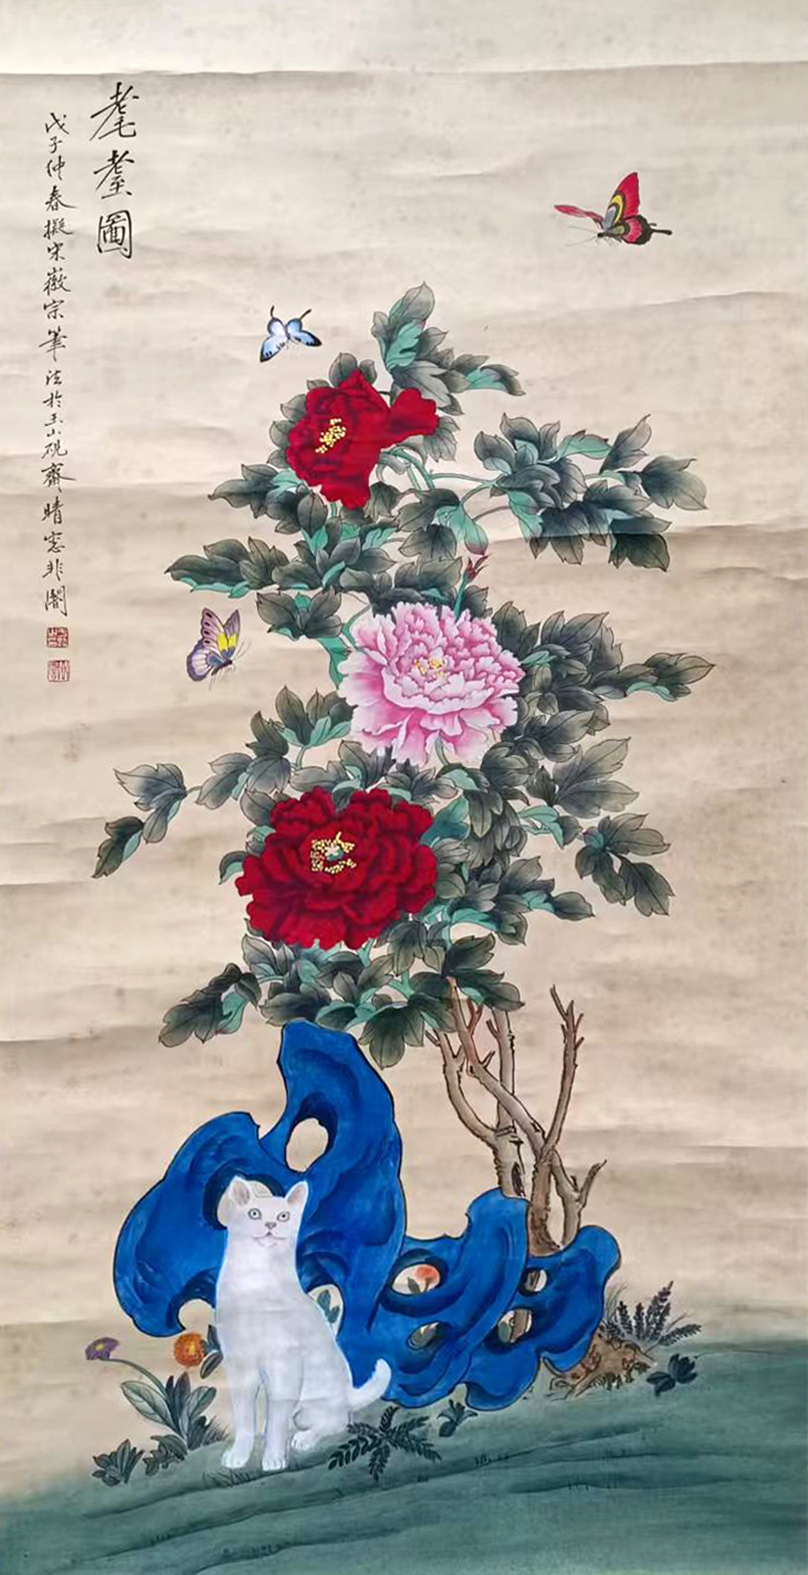 耄耋圖
戊子仲春擬宋徽宗筆法於玉山硯齋晴窓非闇